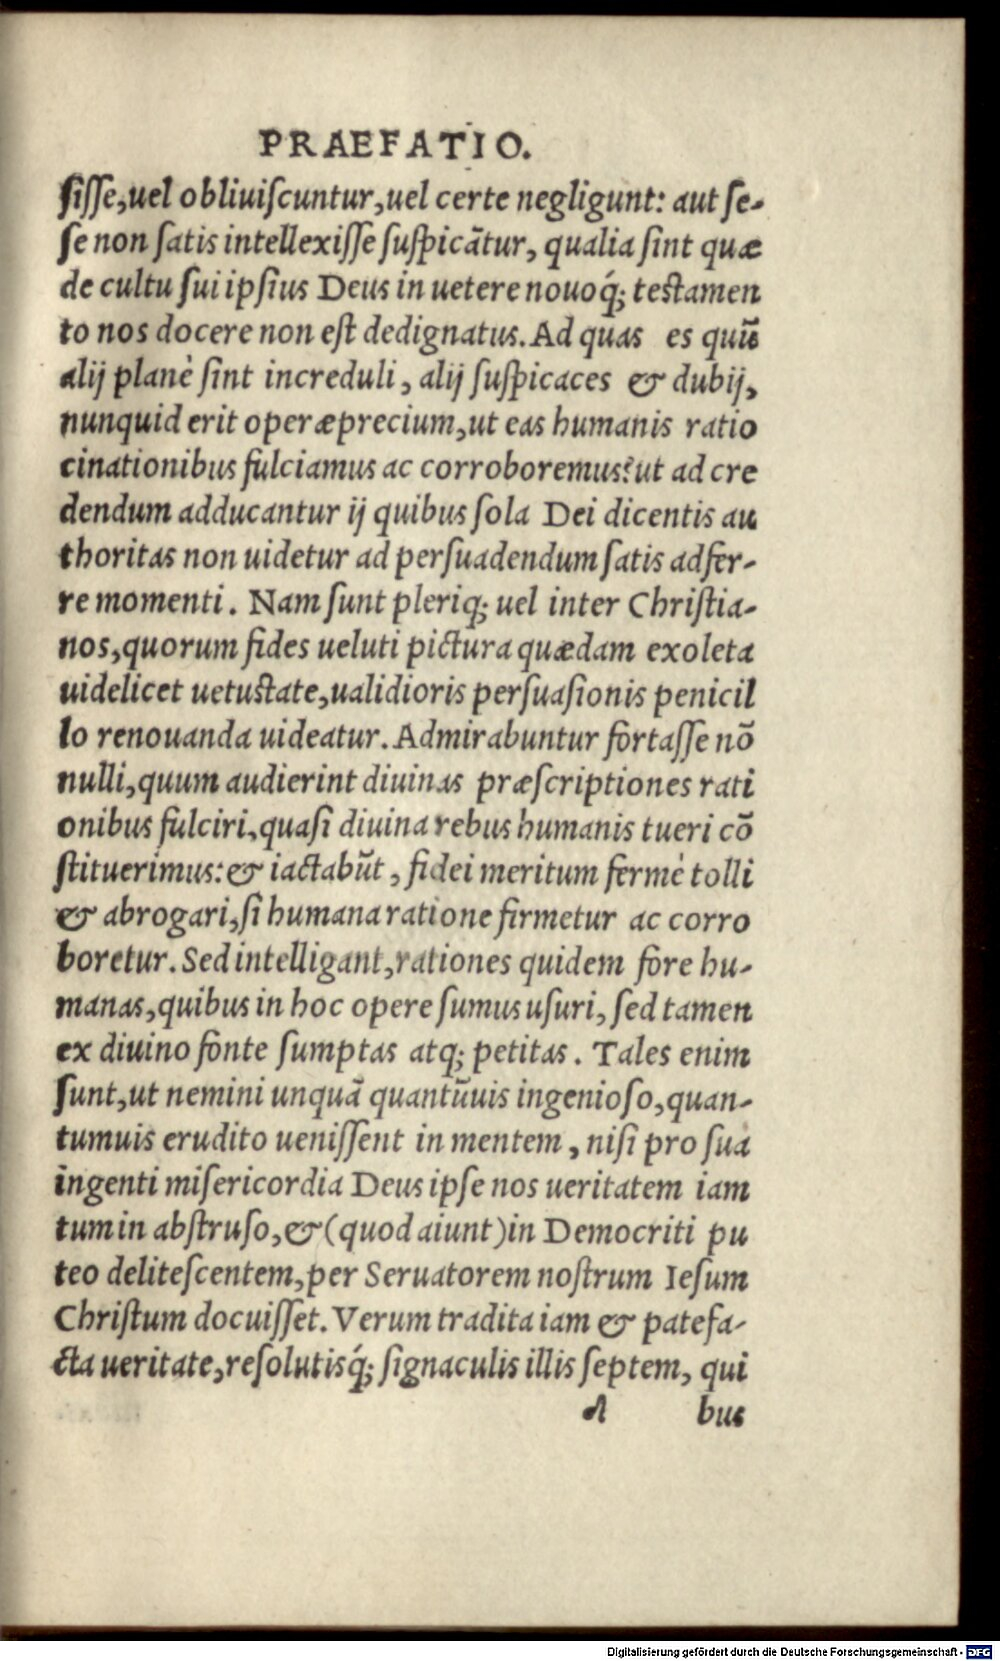 PRAEFATIO.
sisse,uel obliuiscuntur,uel certe negligunt: aut se-
se non satis intellexisse suspicātur, qualia sint quæ
de cultu sui ipsius Deus in uetere nouoq́; testamen
to nos docere non est dedignatus. Ad quas es quū
alij planè sint increduli, alij suspicaces & dubij,
nunquid erit operæprecium,ut eas humanis ratio
cinationibus fulciamus ac corroboremus?ut ad cre
dendum adducantur ij quibus sola Dei dicentis au
thoritas non uidetur ad persuadendum satis adfer-
re momenti. Nam sunt pleriq; uel inter Christia-
nos,quorum fides ueluti pictura quædam exoleta
uidelicet uetustate,ualidioris persuasionis penicil
lo renouanda uideatur. Admirabuntur fortasse nō
nulli,quum audierint diuinas præscriptiones rati
onibus fulciri,quasi diuina rebus humanis tueri cō
stituerimus:& iactabūt, fidei meritum fermè tolli
& abrogari,si humana ratione firmetur ac corro
boretur. Sed intelligant,rationes quidem fore hu-
manas,quibus in hoc opere sumus usuri, sed tamen
ex diuino fonte sumptas atq; petitas. Tales enim
sunt,ut nemini unquā quantūuis ingenioso,quan-
tumuis erudito uenissent in mentem, nisi pro sua
ingenti misericordia Deus ipse nos ueritatem iam
tum in abstruso,&(quod aiunt)in Democriti pu
teo delitescentem,per Seruatorem nostrum Iesum
Christum docuisset. Verum tradita iam & patefa-
cta ueritate,resolutisq́; signaculis illis septem, qui
bus
Digitalisierung gefördert durch die Deutsche Forschungsgemeinschaft - DFG